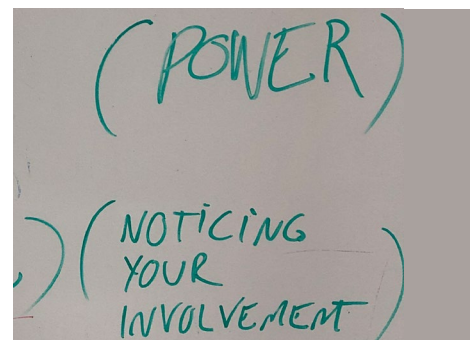 (POWER)
) (NOTICING
YOUR
INVOLVEMENT)